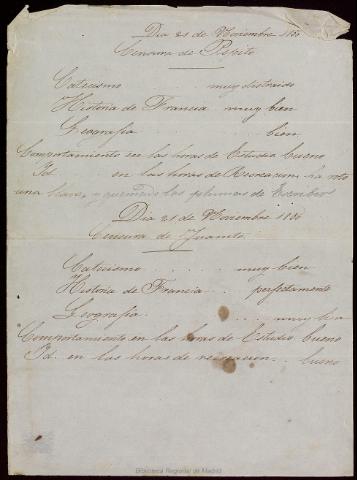 Dia 21 de Noviembre 1886
Censura de Pepito
Catecismo . . . muy distraido
Historia de Francia muy bien
Geografia . . . bien
Comportamiento en las horas de Estudio bueno
Id. en las horas de Recreacion ha roto
una llave, y quemado las plumas de Escribir
Dia 21 de Noviembre 1886
Censura de Juanito
Catecismo . . . . muy bien
Historia de Francia . . perfectamente
Geografia . . . . muy bien
Comportamiento en las horas de Estudio bueno
Id. en las horas de recreacion . . bueno
Biblioteca Regional de Madrid